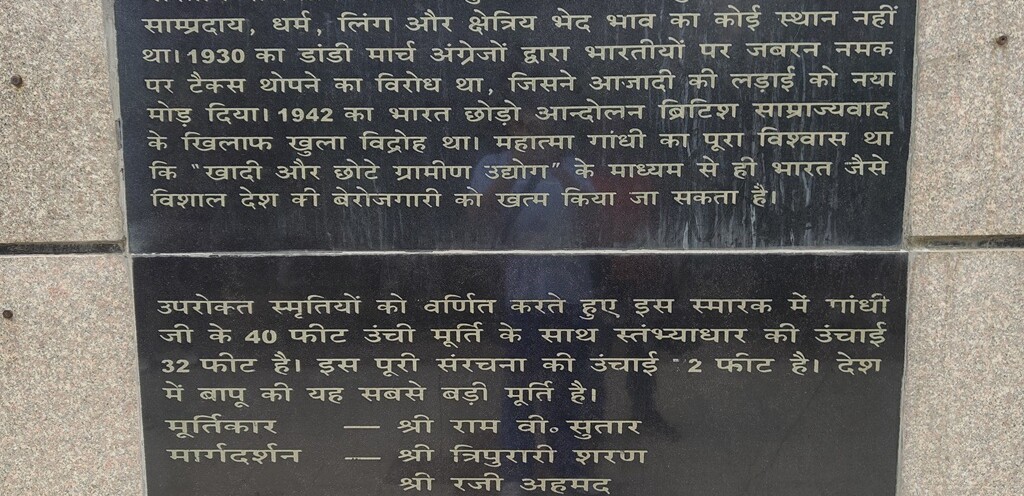 साम्प्रदाय, धर्म, लिंग और क्षेत्रिय भेद भाव का कोई स्थान नहीं
था। 1930 का डांडी मार्च अंग्रेजों द्वारा भारतीयों पर जबरन नमक
पर टैक्स थोपने का विरोध था, जिसने आजादी की लड़ाई को नया
मोड़ दिया। 1942 का भारत छोड़ो आन्दोलन ब्रिटिश साम्राज्यवाद
के खिलाफ खुला विद्रोह था। महात्मा गांधी का पूरा विश्वास था
कि "खादी और छोटे ग्रामीण उद्योग" के माध्यम से ही भारत जैसे
विशाल देश की बेरोजगारी को खत्म किया जा सकता है।
उपरोक्त स्मृतियों को वर्णित करते हुए इस स्मारक में गांधी
जी के 40 फीट उंची मूर्ति के साथ स्तंभ्याधार की उंचाई
32 फीट है। इस पूरी संरचना की उंचाई 2 फीट है। देश
में बापू की यह सबसे बड़ी मूर्ति है।
मूर्तिकार — श्री राम वी॰ सुतार
मार्गदर्शन — श्री त्रिपुरारी शरण
श्री रजी अहमद